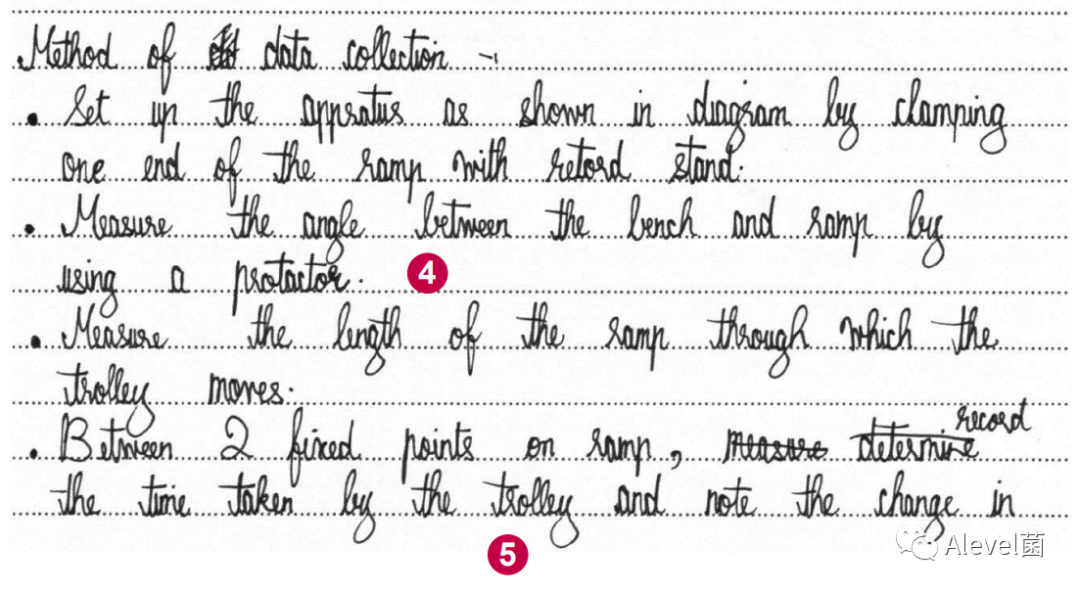 Method of data collection -
• Set up the appratus as shown in diagram by clamping
one end of the ramp with retord stand.
• Measure the angle between the bench and ramp by
using a protactor. 4
• Measure the length of the ramp through which the
trolley moves.
• Between 2 fixed points on ramp, measure determine record
the time taken by the trolley and note the change in
5
Alevel菌